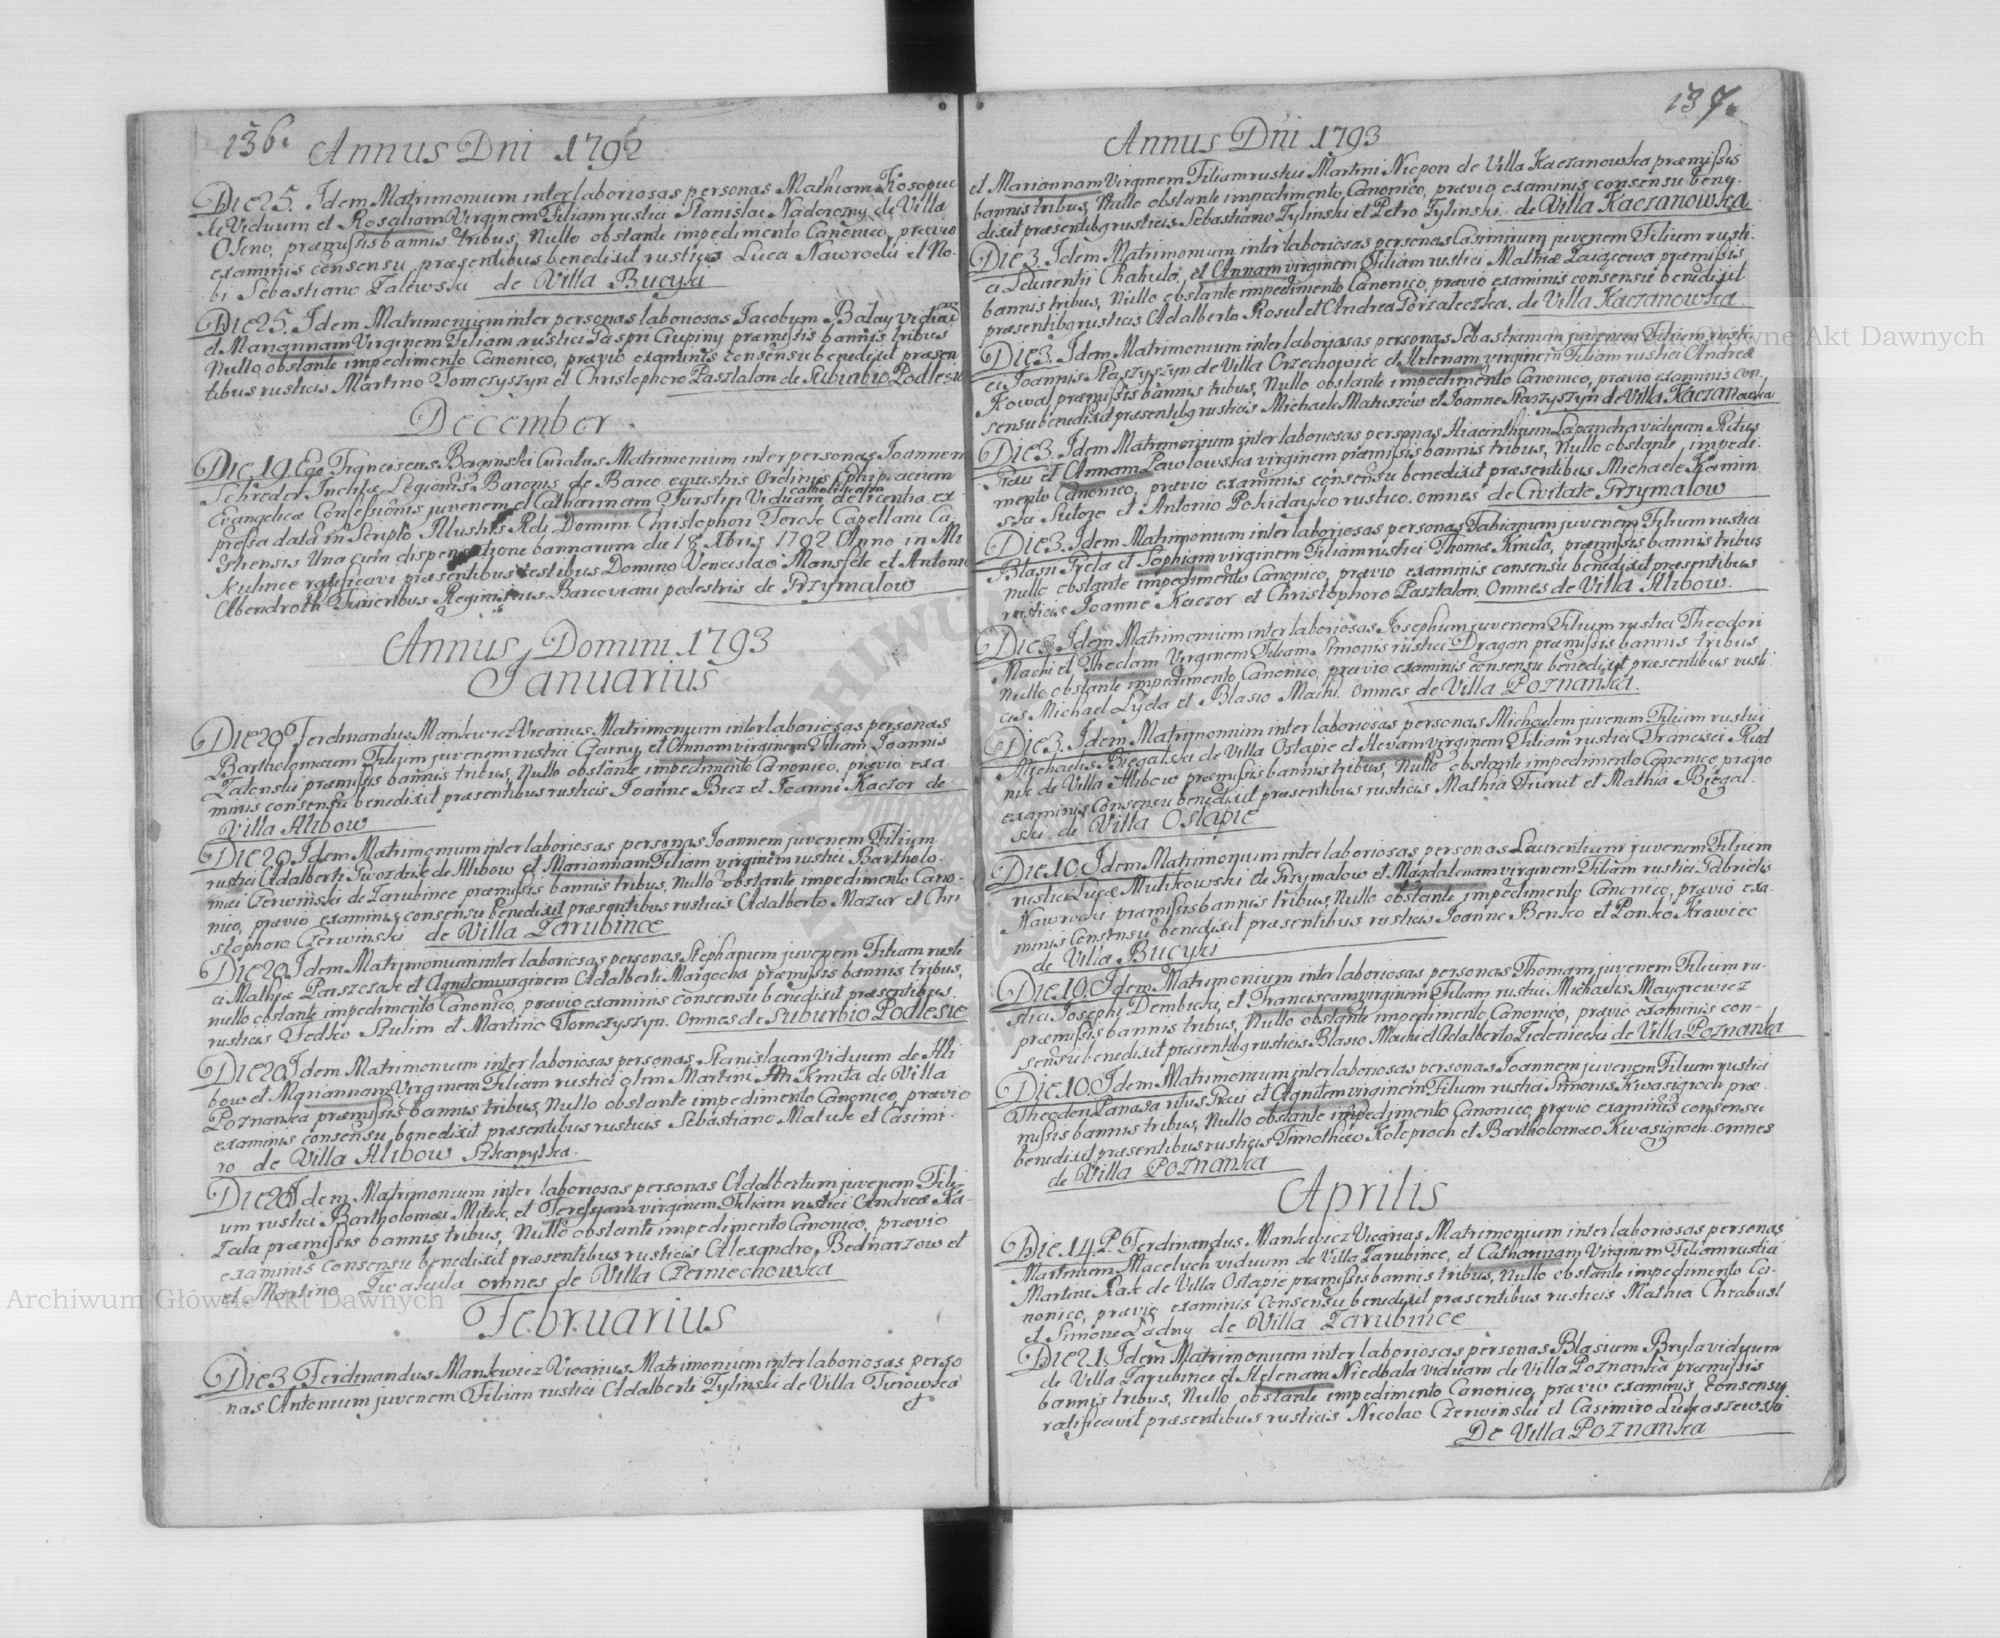 136.
Annus Dni 1792
Die 25. Idem Matrimonium inter laboriosas personas Mathiam Kosopuc
ki Viduum et Rosaliam Virginem Filiam rustici Stanislai Nadorozny de Villa
Oseno, præmissis bannis tribus, Nullo obstante impedimento Canonico, prævio
examinis consensu præsentibus benedixit rusticis Luca Nawrocki et No-
bi Sebastiano Zalewski de Villa Bucyki
Die 25. Idem Matrimonium inter personas laboriosas Jacobum Balay viduum
et Mariannam Virginem Filiam rustici Caspri Ciupiny præmissis bannis tribus
Nullo obstante impedimento Canonico, prævio examinis consensu benedixit præsen
tibus rusticis Martino Tomczyszyn et Christophoro Pasztalan de Suburbio Podlesie
December
Die 19. Ego Franciscus Baginski Curatus Matrimonium inter personas Joannem
Schreder Inclitæ Legionis Baronis de Barco equestris Ordinis Ephipiarium
Evangelicæ Confessionis juvenem et Catharinam Furstin Viduam catholicam de licentia ex
pressa data in Scripto Illustris Rdi Domini Christophori Torche Capellani Ca
strensis Una cum dispensatione bannorum die 18 Xbris 1792 Anno in Mi
kulince ratificavi præsentibus testibus Domino Venceslao Mansfelt et Antonio
Abendroth Furieribus Regiminis Barcoviani pedestris de Przymalow
Annus Domini 1793
Januarius
Die 20 Ferdinandus Mankiewicz Vicarius Matrimonium inter laboriosas personas
Bartholomæum Filium juvenem rustici Czarny, et Annam virginem Filiam Joannis
Zalenski præmissis bannis tribus, Nullo obstante impedimento Canonico, prævio exa-
minis consensu benedixit præsentibus rusticis Joanne Bicz et Joanne Kaczor de
Villa Hlibow
Die 20 Idem Matrimonium inter laboriosas personas Joannem juvenem Filium
rustici Adalberti Gwozdzik de Hlibow et Mariannam Filiam virginem rustici Bartholo-
mæi Czerwinski de Zarubince præmissis bannis tribus, Nullo obstante impedimento Cano-
nico, prævio examinis consensu benedixit præsentibus rusticis Adalberto Mazur et Chri
stophoro Czerwinski de Villa Zarubince
Die 20 Idem Matrimonium inter laboriosas personas Stephanum juvenem Filium rusti
ci Mathiæ Parszczak et Agnitem virginem Adalberti Margocha præmissis bannis tribus,
nullo obstante impedimento Canonico, prævio examinis consensu benedixit præsentibus
rusticis Fedko Szulim et Martino Tomczyszyn. Omnes de Suburbio Podlesie
Die 20 Idem Matrimonium inter laboriosas personas Stanislaum Viduum de Hli
bow et Mariannam Virginem Filiam rustici olim Martini Kmita de Villa
Poznanka præmissis bannis tribus, Nullo obstante impedimento Canonico, prævio
examinis consensu benedixit præsentibus rusticis Sebastiano Matusz et Casimi-
ro de Villa Hlibow Szkarpytka.
Die 20 Idem Matrimonium inter laboriosas personas Adalbertum juvenem Fili-
um rustici Bartholomæi Mitek, et Teressiam virginem Filiam rustici Andreæ Ka-
zala præmissis bannis tribus, Nullo obstante impedimento Canonico, prævio
examinis consensu benedixit præsentibus rusticis Alexandro Bednarzow et
et Martino Zwaskula omnes de Villa Czerniechowka
Februarius
Die 3 Ferdinandus Mankiewicz Vicarius Matrimonium inter laboriosas perso
nas Antonium juvenem Filium rustici Adalberti Zylinski de Villa Turowka
et
137.
Annus Dni 1793
et Mariannam Virginem Filiam rustici Martini Niepon de Villa Kaczanowka præmissis
bannis tribus, Nullo obstante impedimento Canonico, prævio examinis consensu bene-
dixit præsentibq rusticis Sebastiano Zylinski et Petro Zylinski. de Villa Kaczanowka
Die 3. Idem Matrimonium inter laboriosas personas Casimirum juvenem Filium rusti-
ci Laurentii Chahula, et Annam virginem Filiam rustici Mathiæ præmissis
bannis tribus, Nullo obstante impedimento Canonico, prævio examinis consensu benedixit
præsentibq rusticis Adalberto Rosul et Andrea Gorzaleczka. de Villa Kaczanowka.
Die 3. Idem Matrimonium inter laboriosas personas Sebastianum juvenem Filium rusti
ci Joannis Staszyszyn de Villa Orzechowiec et Helenam virginem Filiam rustici Andreæ
Kowal præmissis bannis tribus, Nullo obstante impedimento Canonico, prævio examinis con-
sensu benedixit præsentibq rusticis Michaele Matuszow et Joanne Starzyszyn de Villa Kaczanowka
Die 3. Idem Matrimonium inter laboriosas personas Hiacinthum Lapandra viduum Ritus
Græci et Annam Pawlowska virginem præmissis bannis tribus, Nullo obstante impedi-
mento Canonico, prævio examinis consensu benedixit præsentibus Michaele Kamin
ski Sutore et Antonio Pohidayko rustico. omnes de Civitate Przymalow
Die 3. Idem Matrimonium inter laboriosas personas Fabianum juvenem Filium rustici
Blasii Greta et Sophiam virginem Filiam rustici Thomæ Kmita, præmissis bannis tribus
nullo obstante impedimento Canonico, prævio examinis consensu benedixit præsentibus
rusticis Joanne Kaczor et Christophoro Pasztalan. Omnes de Villa Hlibow.
Die 3. Idem Matrimonium inter laboriosas Josephum juvenem Filium rustici Theodori
Machi et Theclam Virginem Filiam Simonis rustici Dragan præmissis bannis tribus
Nullo obstante impedimento Canonico, prævio examinis consensu benedixit præsentibus rusti
cis Michael Lyda et Blasio Machi. Omnes de Villa Poznanka.
Die 3. Idem Matrimonium inter laboriosas personas Michaelem juvenem Filium rustici
Michaelis Biegalska de Villa Ostapie et Hevam virginem Filiam rustici Francisci Rud
nik de Villa Hlibow præmissis bannis tribus, Nullo obstante impedimento Canonico prævio
examinis consensu benedixit præsentibus rusticis Mathia Tiurut et Mathia Biegal.
ski de Villa Ostapie
Die 10. Idem Matrimonium inter laboriosas personas Laurentium juvenem Filium
rustici Lucæ Mulikowski de Przymalow et Magdalenam virginem Filiam rustici Gabrielis
Nawrocki præmissis bannis tribus, Nullo obstante impedimento Canonico, prævio exa-
minis consensu benedixit præsentibus rusticis Joanne Benko et Panko Krawiec
de Villa Bucyki
Die 10. Idem Matrimonium inter laboriosas personas Thomam juvenem Filium ru-
stici Josephi Dembicki, et Franciscam virginem Filiam rustici Michaelis Maygrewicz
præmissis bannis tribus, Nullo obstante impedimento Canonico, prævio examinis con-
sensu benedixit præsentibq rusticis Blasio Machi et Adalberto Zieleniecki de Villa Poznanka
Die 10. Idem Matrimonium inter laboriosas personas Joannem juvenem Filium rustici
Theodori Panasa ritus Græci et Agnitem virginem Filiam rustici Simonis Kwasigroch præ-
missis bannis tribus, Nullo obstante impedimento Canonico, prævio examinis consensu
benedixit præsentibus rusticis Timotheo Koleproch et Bartholomæo Kwasigroch. omnes
de Villa Poznanka
Aprilis
Die 14 P. Ferdinandus Mankiewicz Vicarius Matrimonium inter laboriosas personas
Martinum Maceluch viduum de Villa Zarubince, et Catharinam Virginem Filiam rustici
Martini Rak de Villa Ostapie præmissis bannis tribus, Nullo obstante impedimento Ca-
nonico, prævio examinis consensu benedixit præsentibus rusticis Mathia Chrabust
et Simone Ladny de Villa Zarubince
Die 21. Idem Matrimonium inter laboriosas personas Blasium Bryla viduum
de Villa Zarubince et Helenam Niedbala viduam de Villa Poznanka præmissis
bannis tribus, Nullo obstante impedimento Canonico, prævio examinis consensu
ratificavit præsentibus rusticis Nicolao Czerwinski et Casimiro Lukaszewski
De Villa Poznanka
Archiwum Główne Akt Dawnych